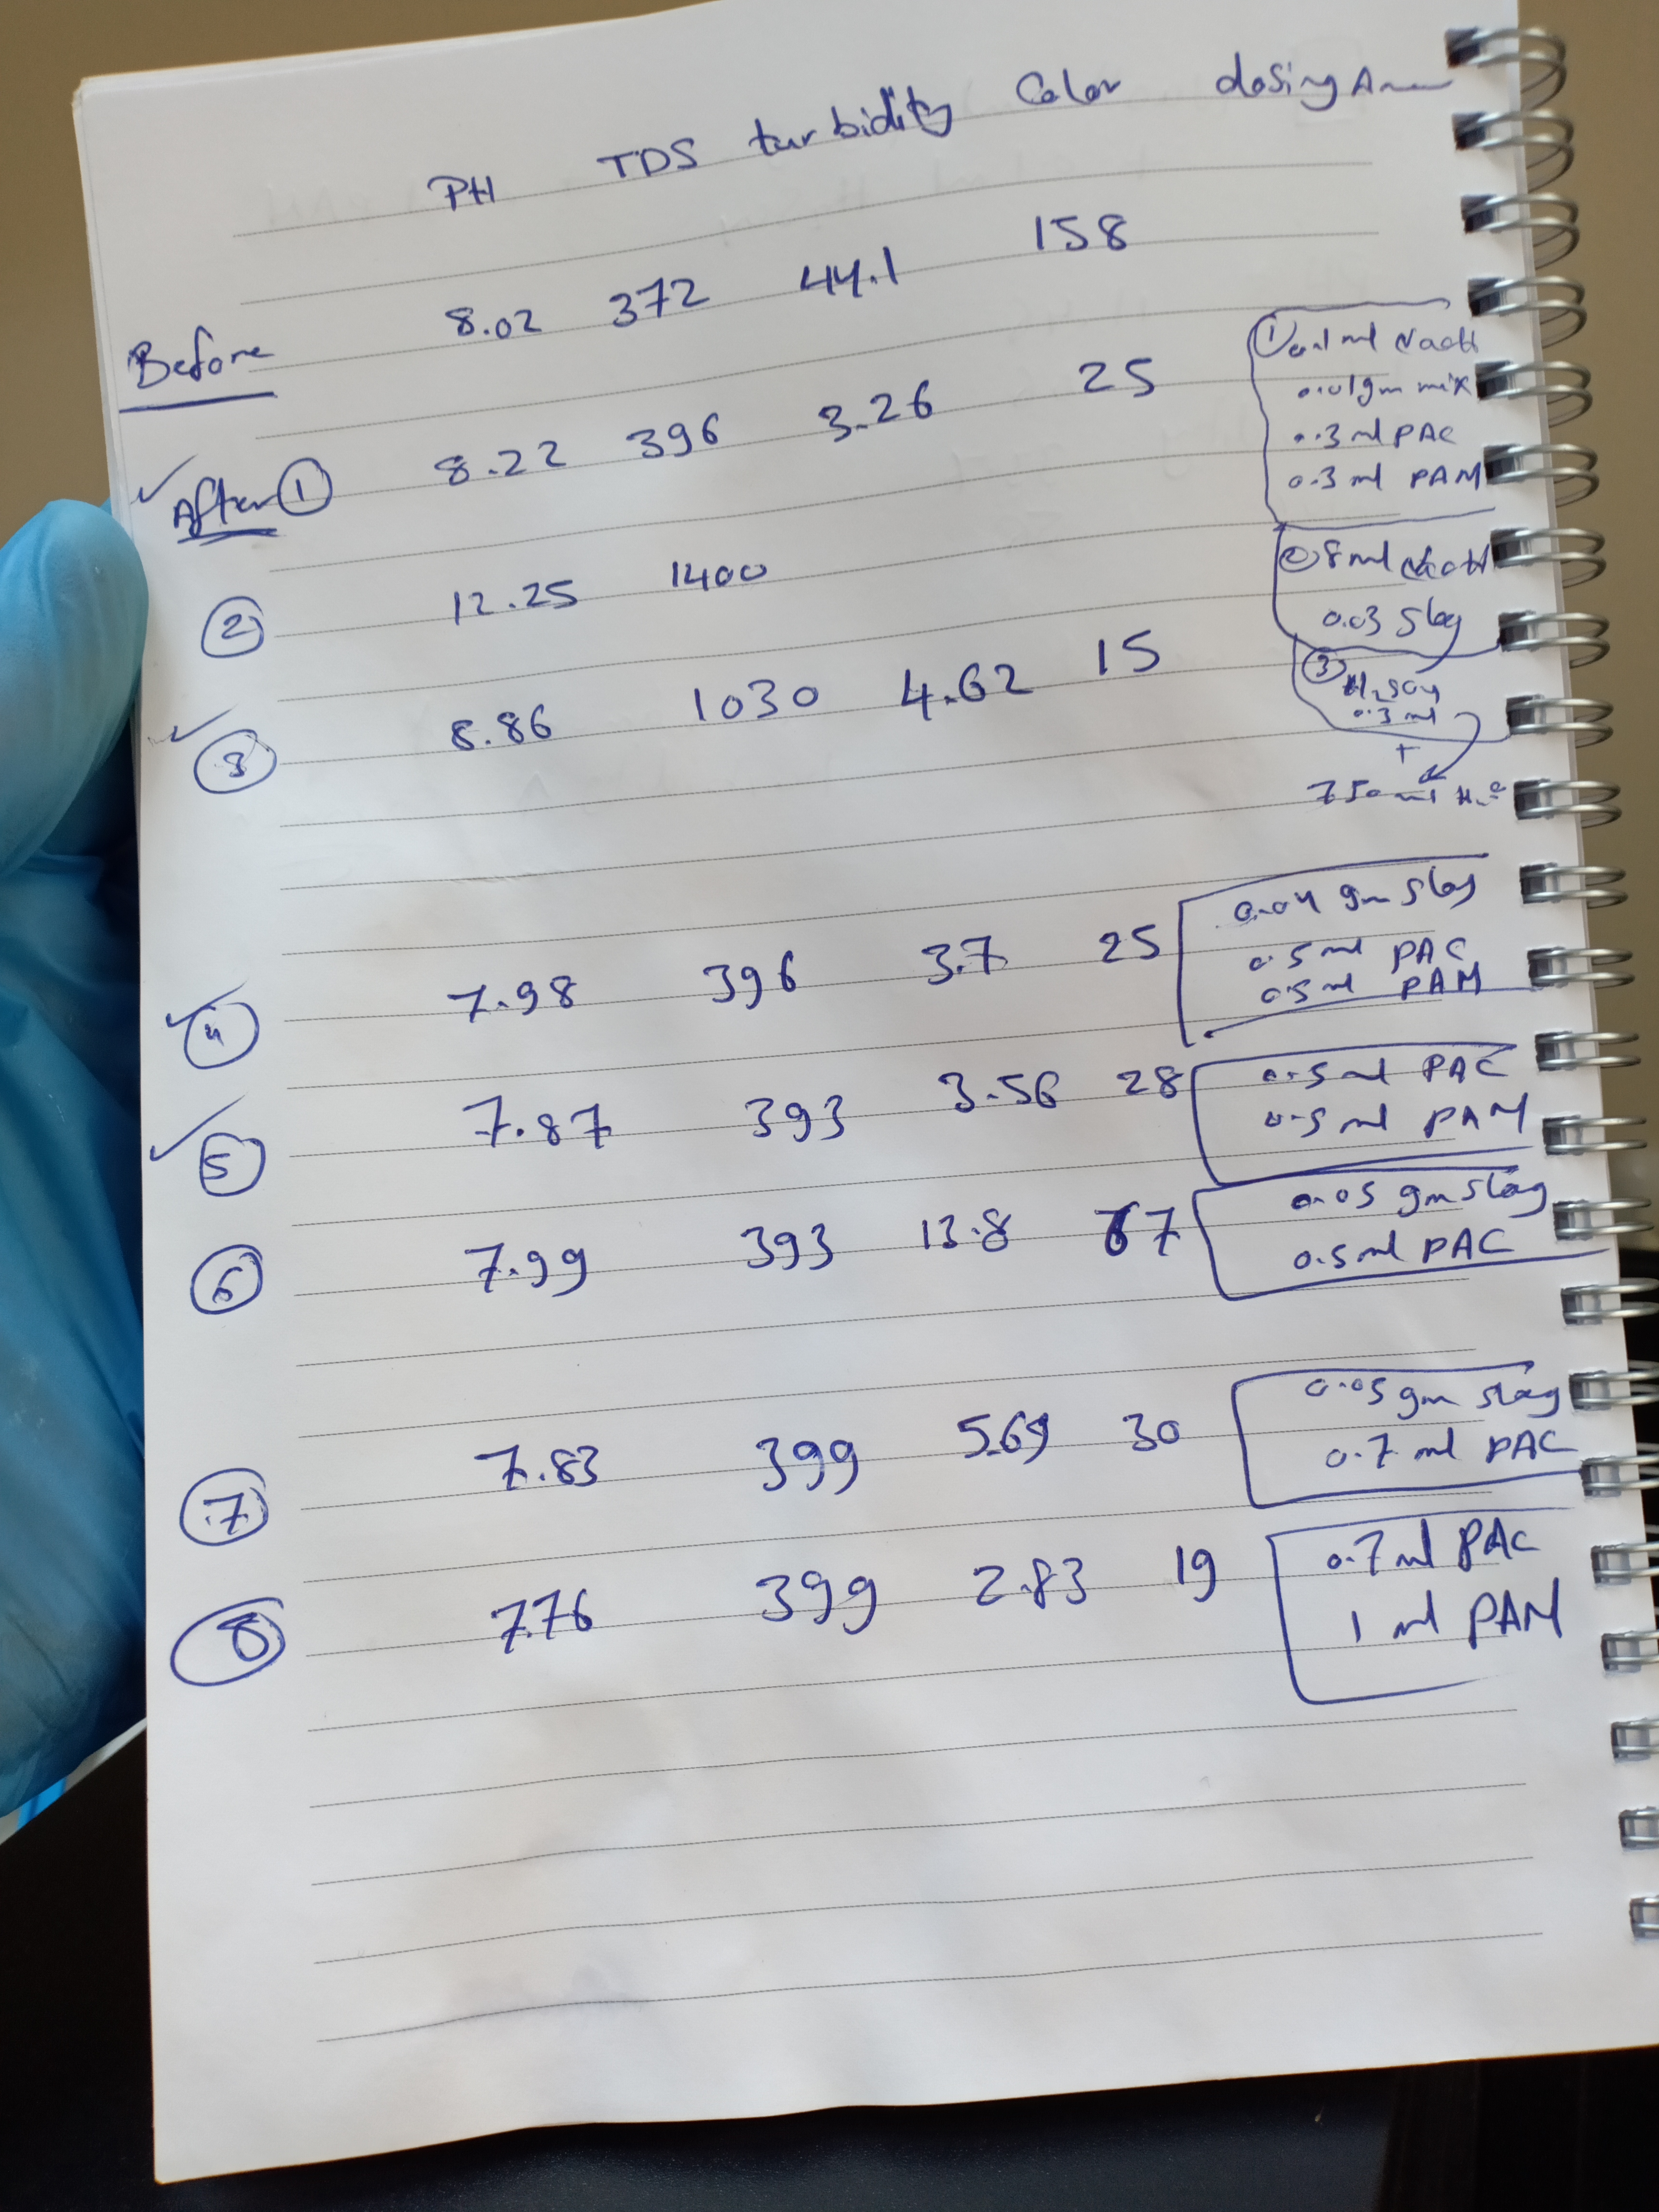 PH TDS turbidity Color dosing
Before 8.02 372 44.1 158
✓ After ① 8.22 396 3.26 25
① 0.1 ml NaoH
0.01gm mix
0.3 ml PAC
0.3 ml PAM
② 12.25 1400
② 8 ml NaoH
0.03 Slag
✓ ③ 8.86 1030 4.62 15
③ H2SO4
0.3 ml
+
750 ml H2O
✓ ④ 7.98 396 3.7 25
0.04 gm slag
0.5 ml PAC
0.5 ml PAM
✓ ⑤ 7.87 393 3.56 28
0.5 ml PAC
0.5 ml PAM
⑥ 7.99 393 13.8 67
0.05 gm slag
0.5 ml PAC
⑦ 7.83 399 5.69 30
0.05 gm slag
0.7 ml PAC
⑧ 7.76 399 2.83 19
0.7 ml PAC
1 ml PAM